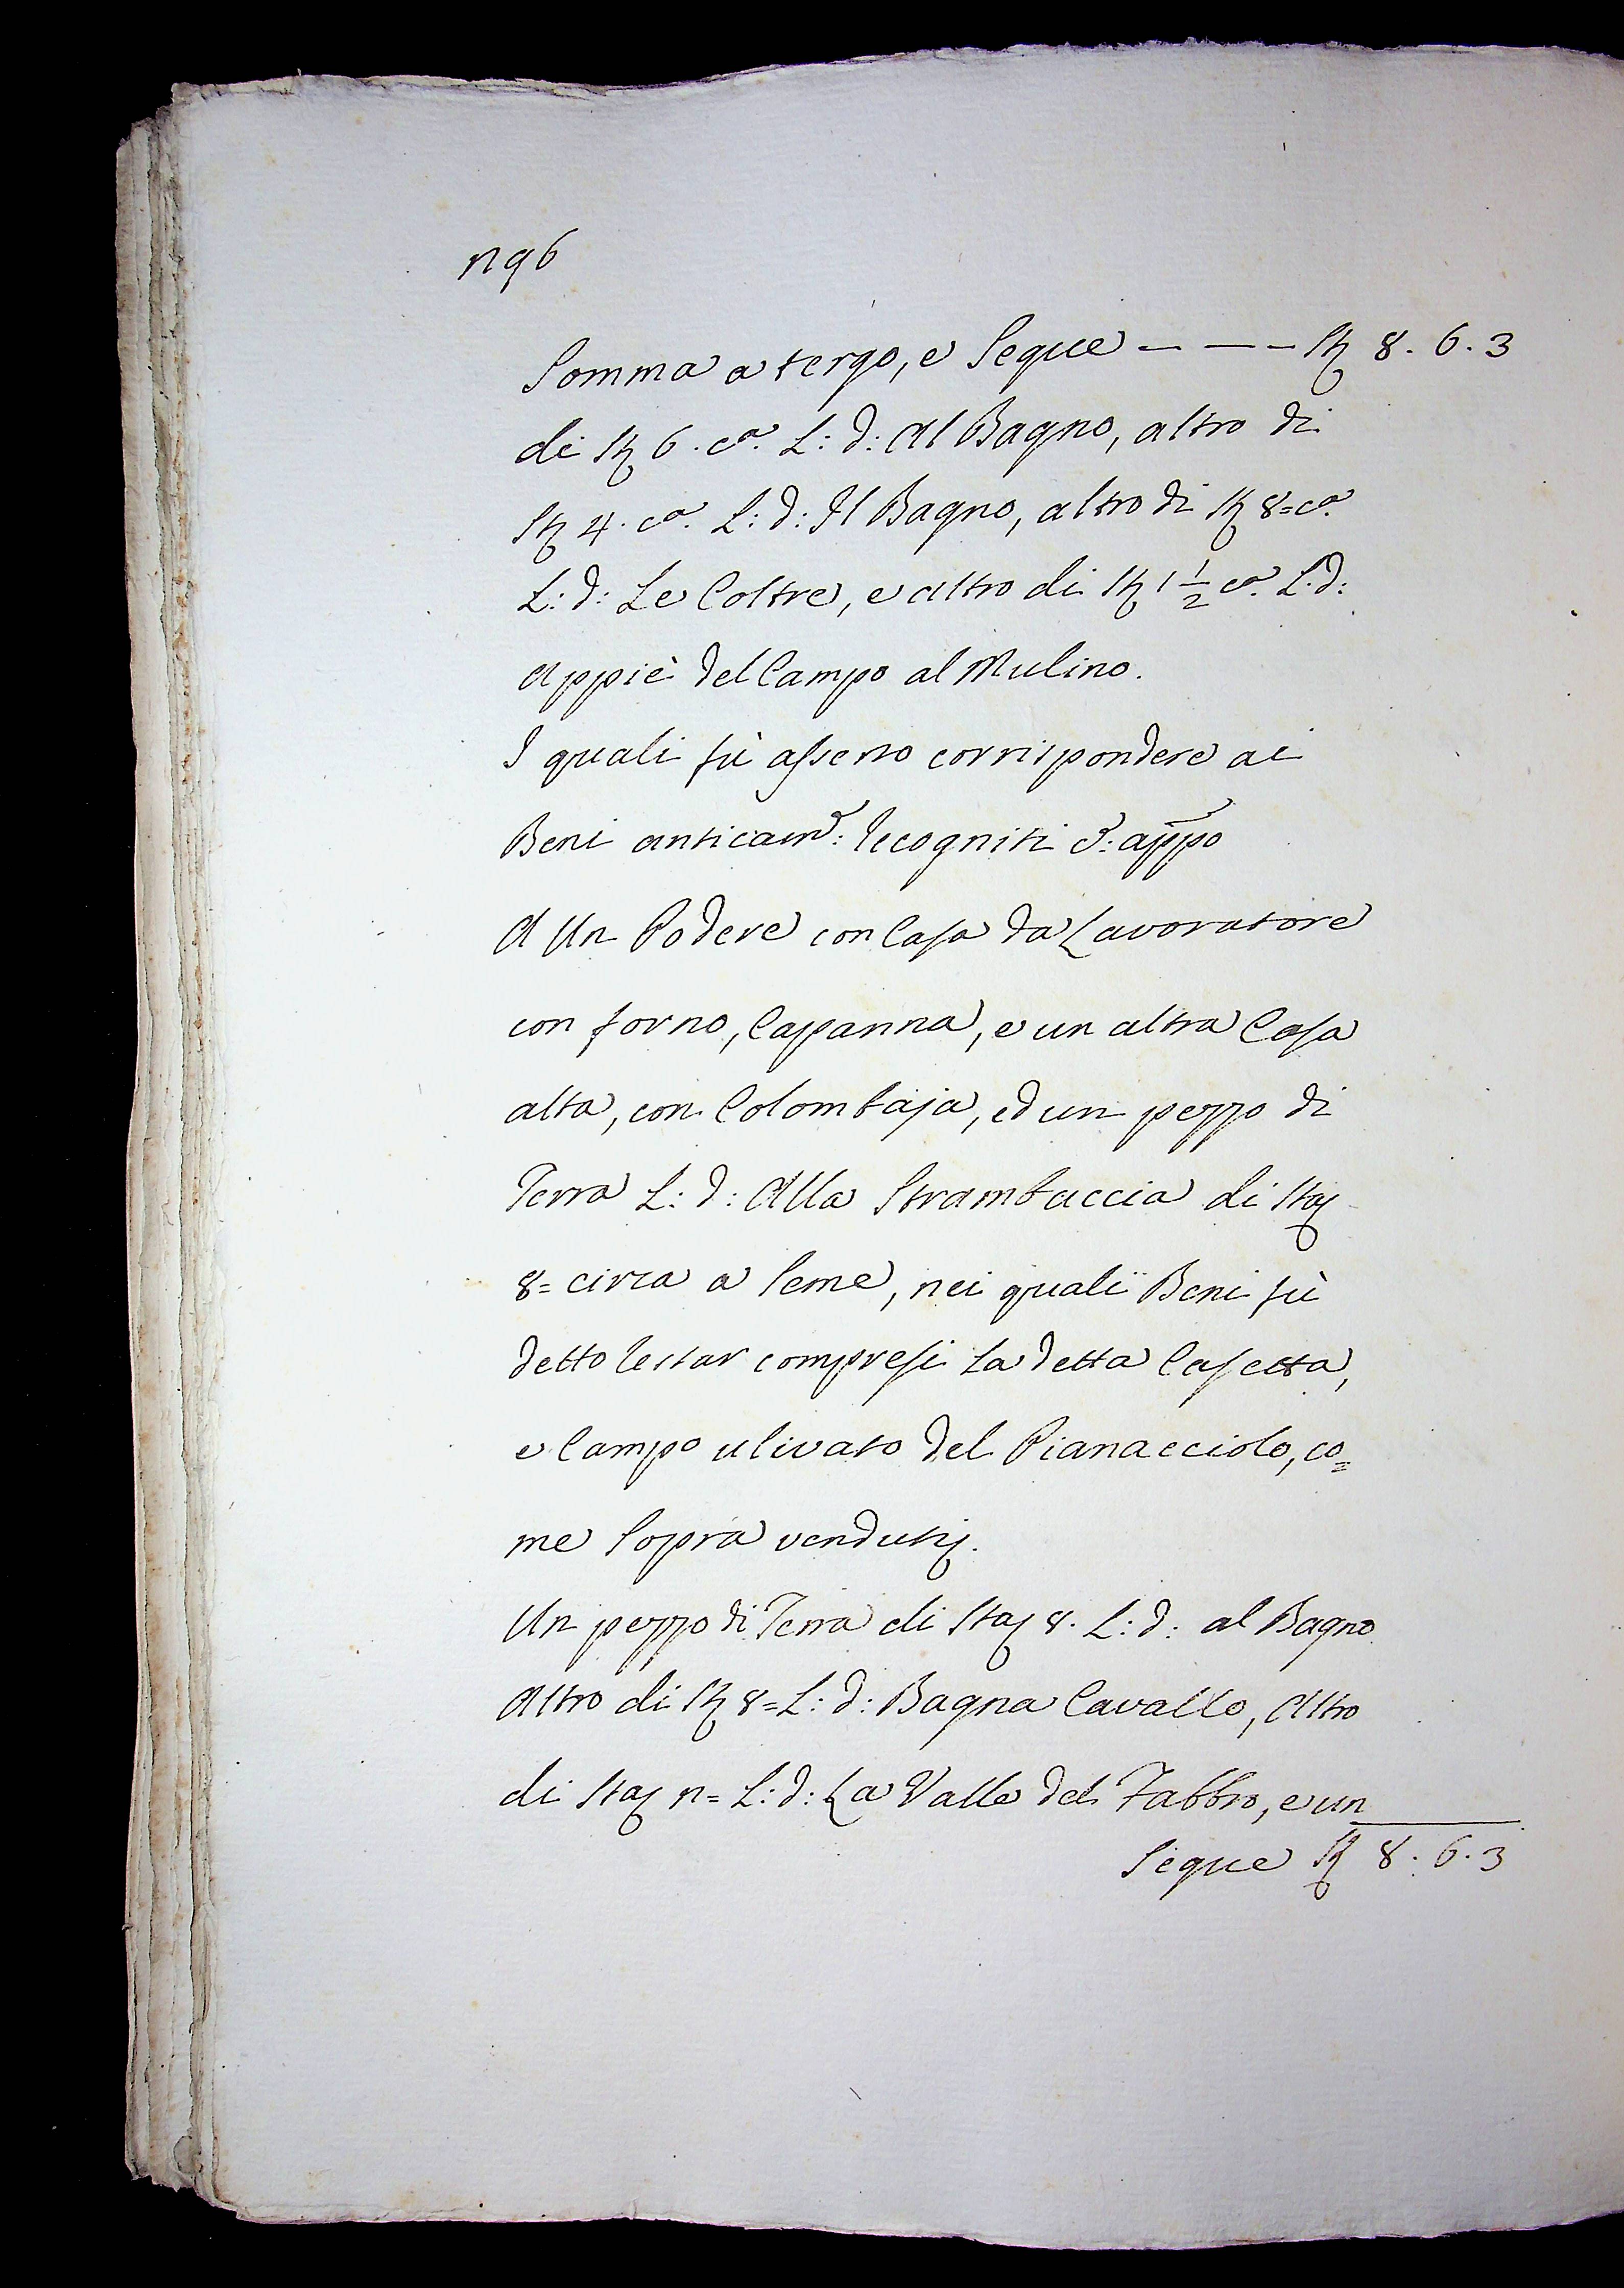 296
Somma a tergo, e Segue - - - St 8. 6. 3
di St 6. ca. L: d: Al Bagno, altro di
St 4. ca. L: d: Il Bagno, altro di St 8= ca.
L: d: Le Coltre, e altro di St 1 1/2 ca. L: d:
Appiè del Campo al Mulino.
I quali fù asserto corrispondere ai
Beni anticam.e: recogniti
A Un Podere con Casa da Lavoratore
con forno, Capanna, e un altra Casa
alta, con Colombaja, ed un pezzo di
Terra L: d: Alla Strambaccia di Staj
8= circa a Seme, nei quali Beni fù
detto restar compresi la detta Casetta,
e Campo ulivato del Pianacciolo, co=
me Sopra vendutij.
Un pezzo di Terra di Staj 8. L: d: al Bagno
Altro di St 8= L: d: Bagna Cavallo, Altro
di Staj L: d: La Valle del Fabbro, e un
Segue St 8. 6. 3